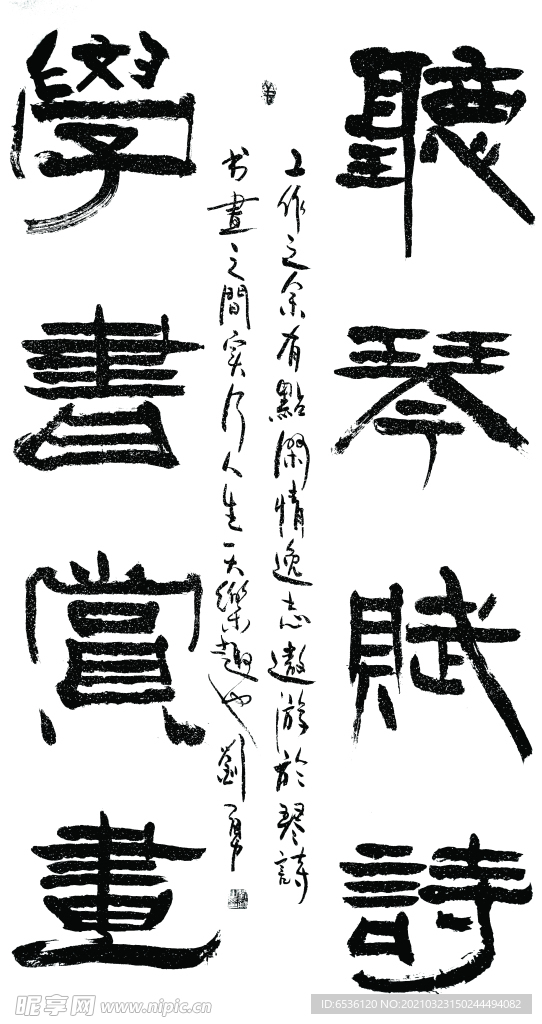 聽琴賦詩
學書賞畫
工作之余有點閑情逸志遨游於琴詩
书畫之間实乃人生一大樂趣也劉勇
昵享网 www.nipic.cn
ID:6536120 NO:20210323150244494082